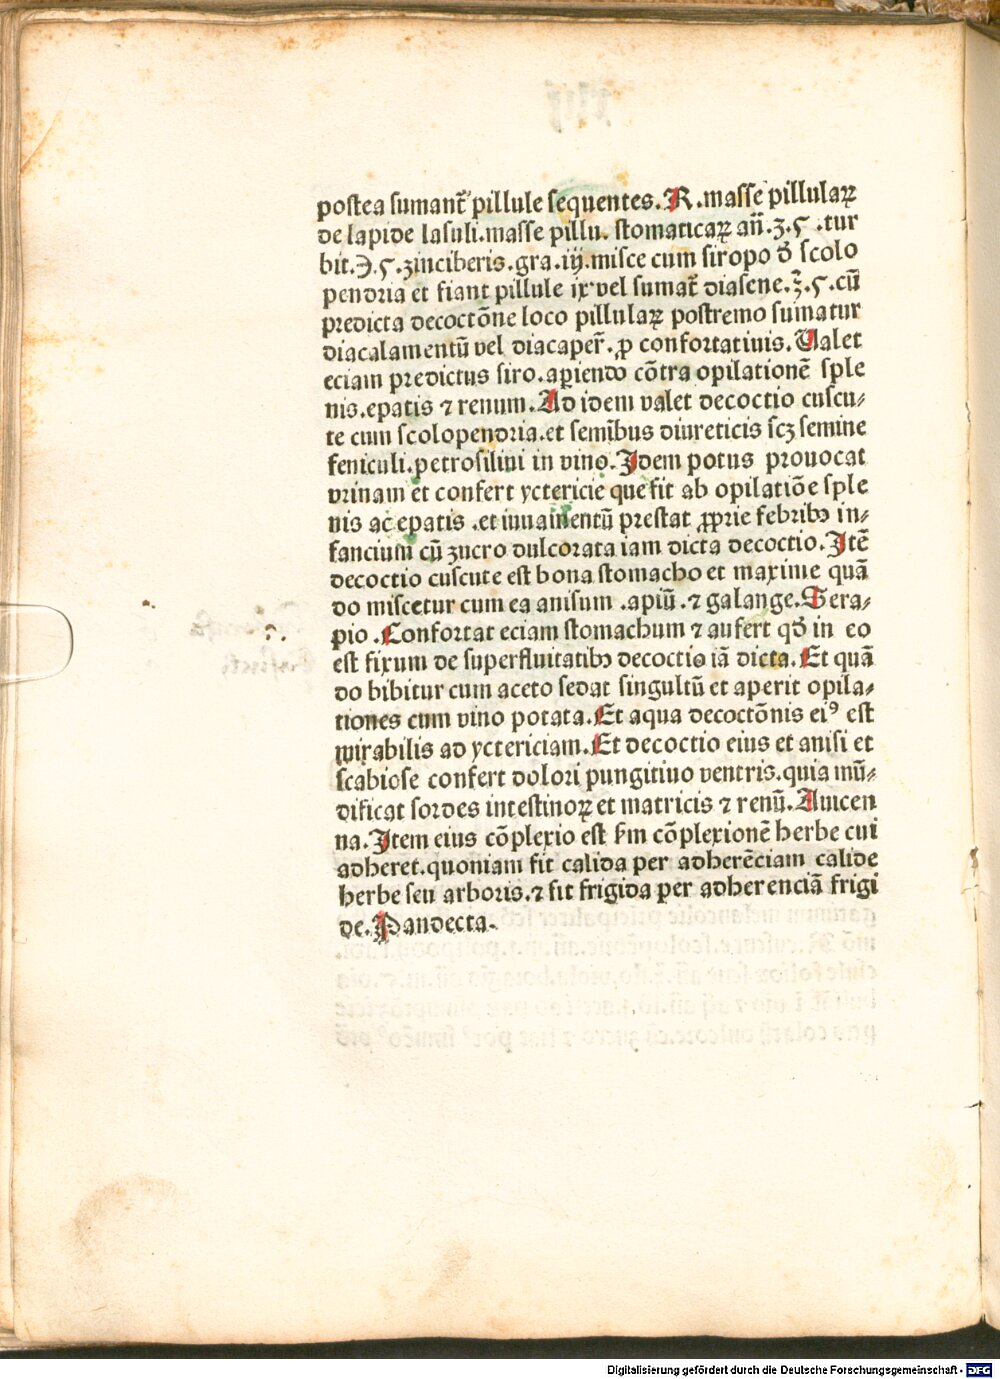 postea sumant᷑ pillule sequentes. R. masse pillulaꝝ
de lapide lasuli. masse pillu. stomaticaꝝ an̄. ʒ. ς .tur
bit. ℈. ς. zinciberis. gra. iij. misce cum siropo ꝺ̄ scolo
pendria et fiant pillule ix vel sumat᷑ diasene. ʒ. ς. cū
predicta decoctōne loco pillulaꝝ postremo sumatur
diacalamentū vel diacaper̄. ꝓ confortatiuis. Ualet
eciam predictus siro. aꝑiendo cōtra opilationē sple
nis. epatis ⁊ renum. Ad idem valet decoctio cuscu⸗
te cum scolopendria. et semībus diureticis scʒ semine
feniculi. petrosilini in vino. Idem potus prouocat
vrinam et confert yctericie que fit ab opilatiōe sple
nis ac epatis .et iuuamentū prestat ꝓprie febribꝯ in⸗
fancium cū zucro dulcorata iam dicta decoctio. Itē
decoctio cuscute est bona stomacho et maxime quā
do miscetur cum ea anisum .apiū. ⁊ galange. Sera⸗
pio . Confortat eciam stomachum ⁊ aufert qꝺ̄ in eo
est fixum de superfluitatibꝯ decoctio iā dicta. Et quā
do bibitur cum aceto sedat singultū et aperit opila⸗
tiones cum vino potata. Et aqua decoctōnis eiꝰ est
mirabilis ad yctericiam. Et decoctio eius et anisi et
scabiose confert dolori pungitiuo ventris. quia mū⸗
dificat sordes intestinoꝝ et matricis ⁊ renū. Auicen
na. Item eius cōplexio est ẜm cōplexionē herbe cui
adheret. quoniam fit calida per adherēciam calide
herbe seu arboris. ⁊ fit frigida per adherenciā frigi
de. Pandecta.
Digitalisierung gefördert durch die Deutsche Forschungsgemeinschaft - DFG